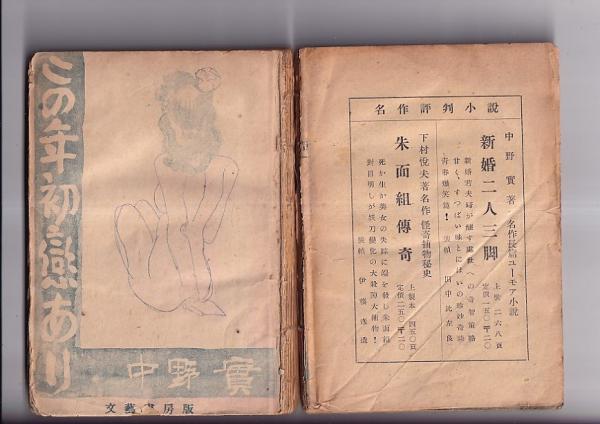 この年初戀あり
中野實
文藝書房版
名作評判小説
中野實著 名作長篇ユーモア小説
新婚二人三脚
上製 二六八頁
定價一五〇〒二〇
新婚若夫婦が醸す
甘く、すっぱい味とにほひの珍妙奇動
青春爆笑篇! 装幀 田中比左良
下村悦夫著名作 怪奇捕物秘史
朱面組傳奇
上製本 四五〇頁
定價二五〇〒二〇
死か生か美女の失踪に端を發し朱面組
對目明しが妖刀變化の大殺陣大捕物!
装幀 伊藤